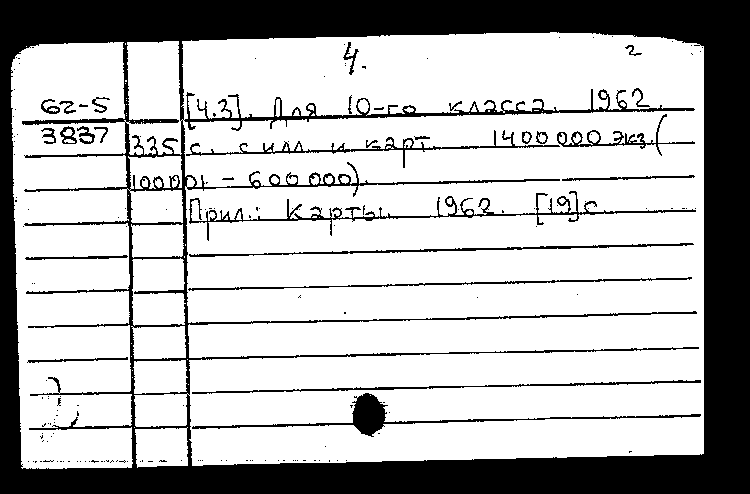 4.
2
62-5 [4.3]. Для 10-го класса. 1962.
3837 335 с. с илл. и карт. 1400000 экз. (
100001 - 600000).
Прил.: Карты. 1962. [19]с
2